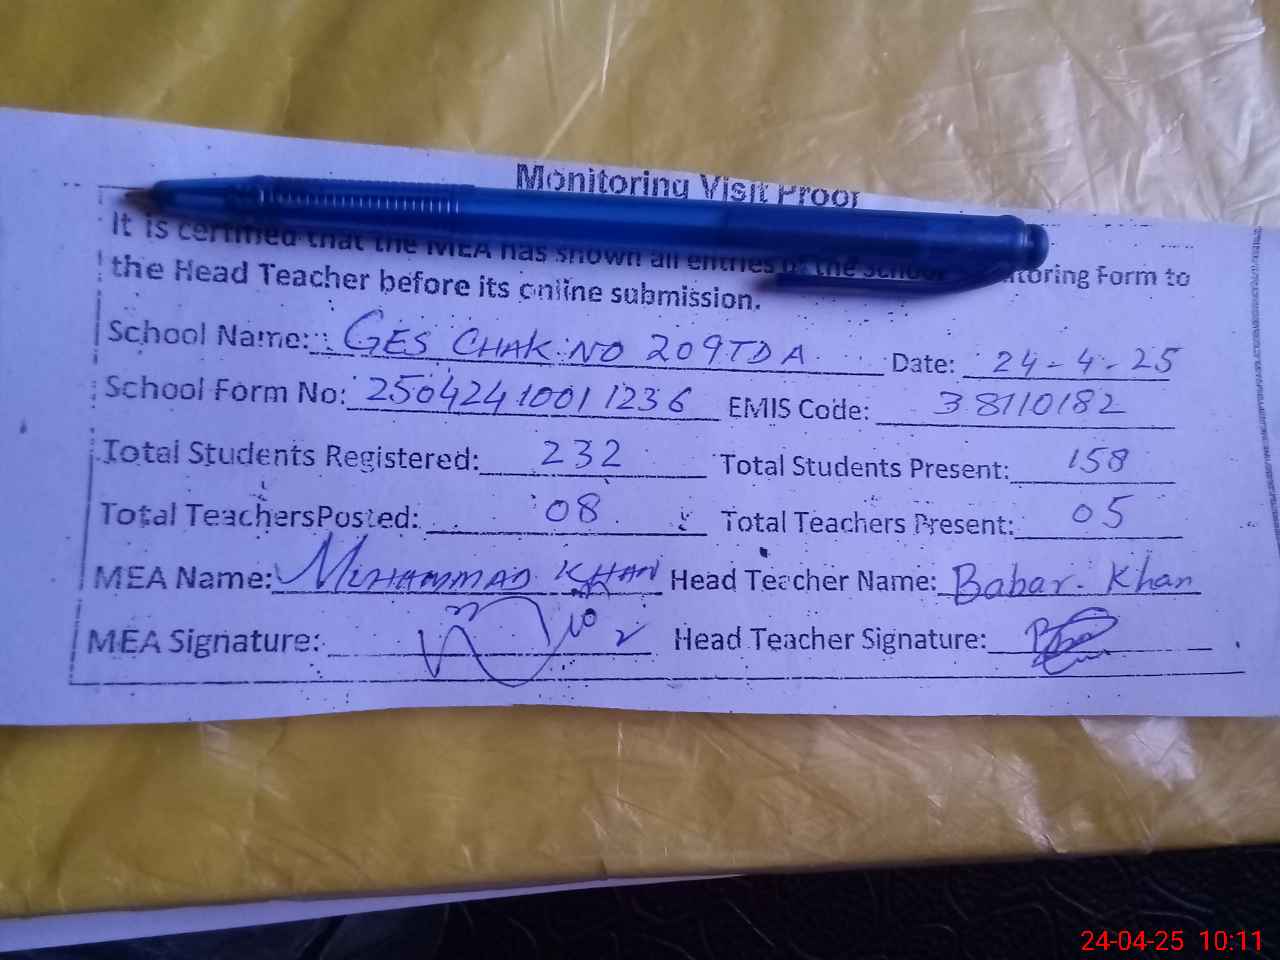 Monitoring Visit Proof
It is certified that the MEA has shown all entries of the School Monitoring Form to
the Head Teacher before its online submission.
School Name: GES CHAK NO 209TDA Date: 24-4-25
School Form No: 2504241001 1236 EMIS Code: 38110182
Total Students Registered: 232 Total Students Present: 158
Total TeachersPosted: 08 Total Teachers Present: 05
MEA Name: MUHAMMAD KHAN Head Teacher Name: Babar Khan
MEA Signature: Head Teacher Signature:
24-04-25 10:11